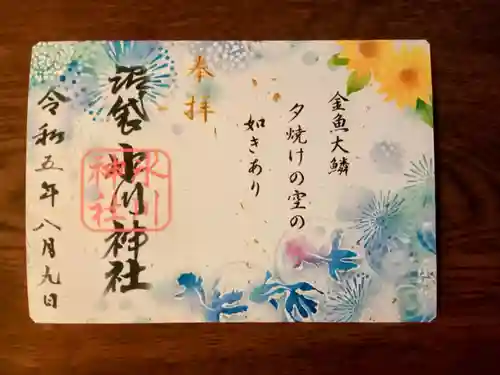 金魚大鱗
夕焼けの空の
如きあり
奉拝
沼袋氷川神社
氷川神社
令和五年八月九日